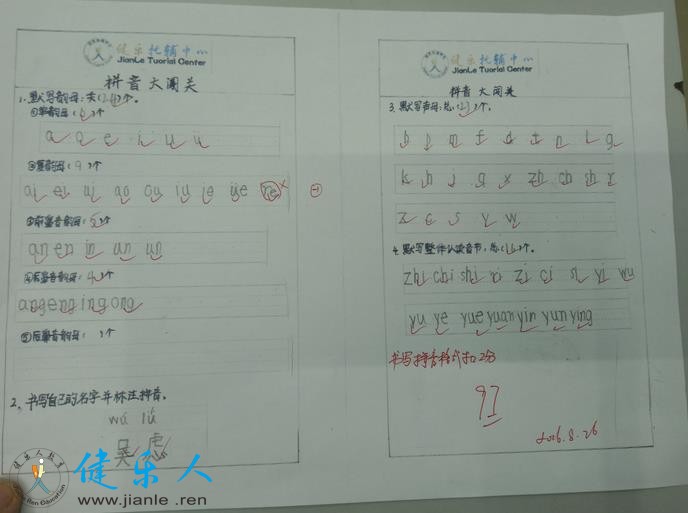 健乐托辅中心
JianLe Tuorial Center
拼音大闯关
1. 默写韵母:共(24)个。
①单韵母(6)个
a o e i u ü
②复韵母(9)个
ai ei ui ao ou iu ie üe
③前鼻音韵母(5)个
an en in un ün
④后鼻音韵母(4)个
ang eng ing ong
⑤后鼻音韵母( )个
2、书写自己的名字并标注拼音。
健乐托辅中心
JianLe Tuorial Center
拼音大闯关
3. 默写声母:总(21)个。
b p m f d t n l g
k h j q x zh ch sh r
z c s y w
4. 默写整体认读音节,总(16)个。
zhi chi shi ri zi ci si yi wu
yu ye yue yuan yin yun ying
书写拼音格式扣2分
97
2016.8.26
健乐人教育
健乐人
www.jianle .ren